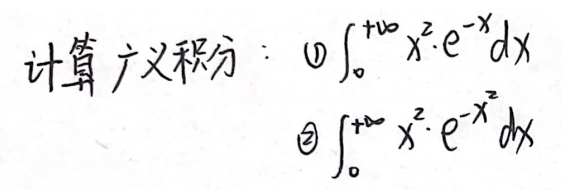 计算广义积分：① ∫₀^{+∞} x²·e^{-x}dx
② ∫₀^{+∞} x²·e^{-x²}dx